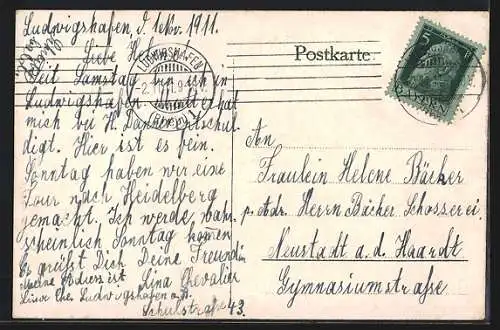 Ludwigshafen d. 1. Nov. 1911.
Liebe
Seit Samstag bin ich in
Ludwigshafen
mich bei H.
digt. Hier ist es fein.
Sonntag haben wir eine
Tour nach Heidelberg
gemacht. Ich werde, wahr-
scheinlich Sonntag komen
Es grüßt Dich Deine Freundin
Meine Adress ist Lina Chevalier
Ludwigshafen a. R.
Schulstraße 43.
LUDWIGSHAFEN
Postkarte
5
BAYERN
An
Fräulein Helene Bächer
p. Adr. Herrn Bächer Schosserei
Neustadt a. d. Haardt
Gymnasiumstraße